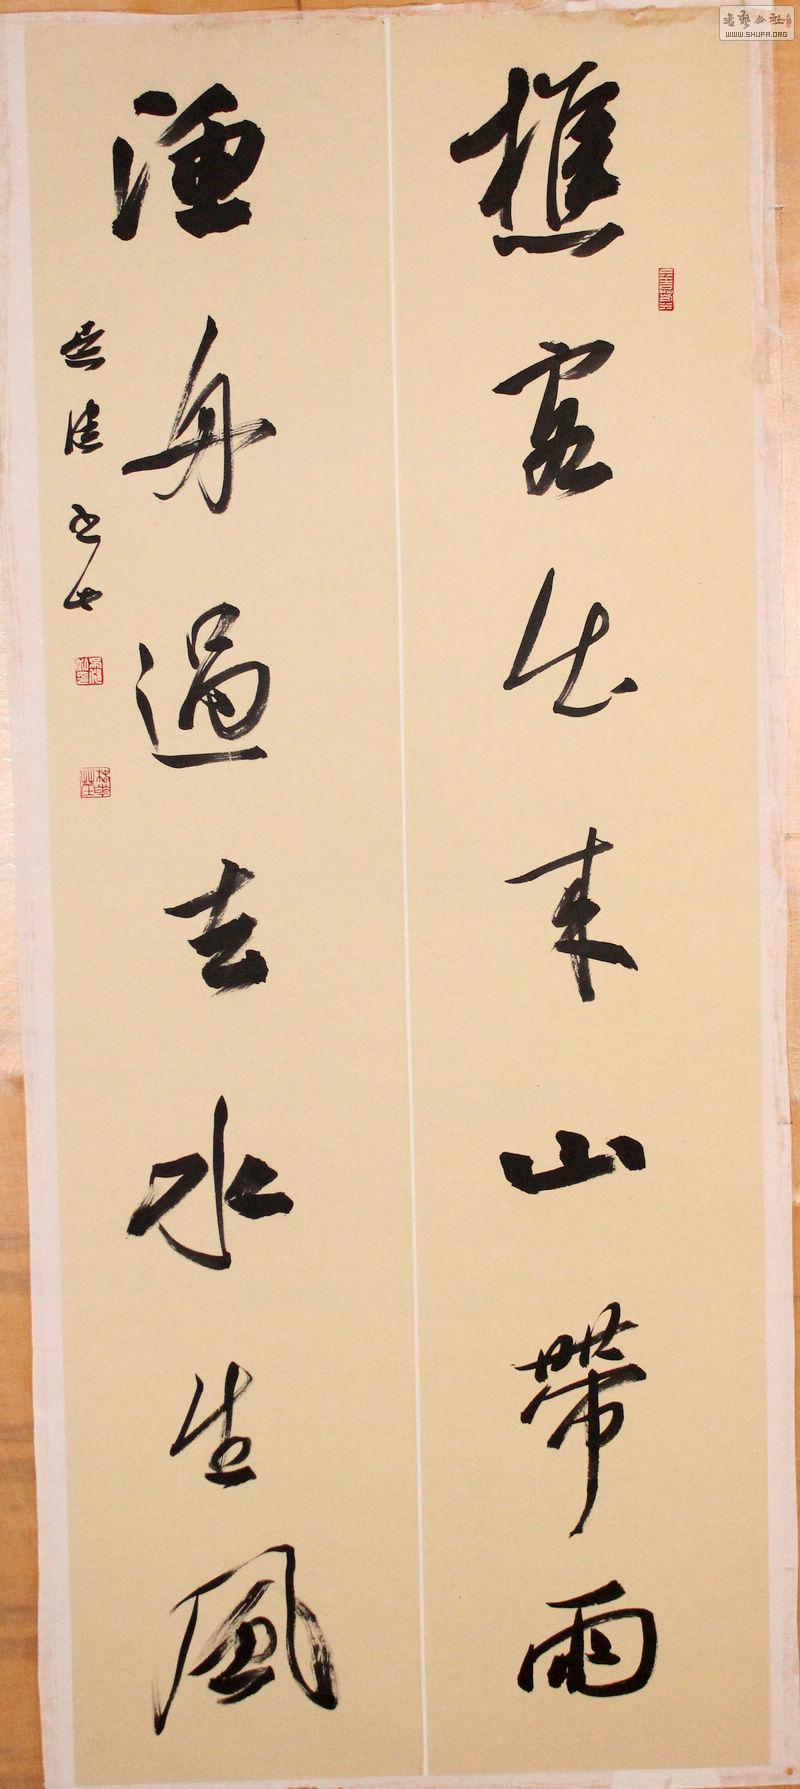 樵客出来山帶雨
漁舟過去水生風
書藝公社
WWW.SHUFA.ORG